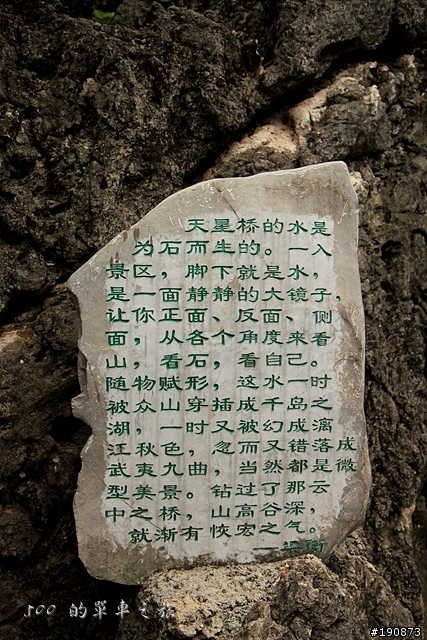 天星桥的水是
为石而生的。一入
景区，脚下就是水，
是一面静静的大镜子，
让你正面、反面、侧
面，从各个角度来看
山，看石，看自己。
随物赋形，这水一时
被众山穿插成千岛之
湖，一时又被幻成漓
江秋色，忽而又错落成
武夷九曲，当然都是微
型美景。钻过了那云
中之桥，山高谷深，
就渐有恢宏之气。
—梁衡
500 的單車之旅
#190873